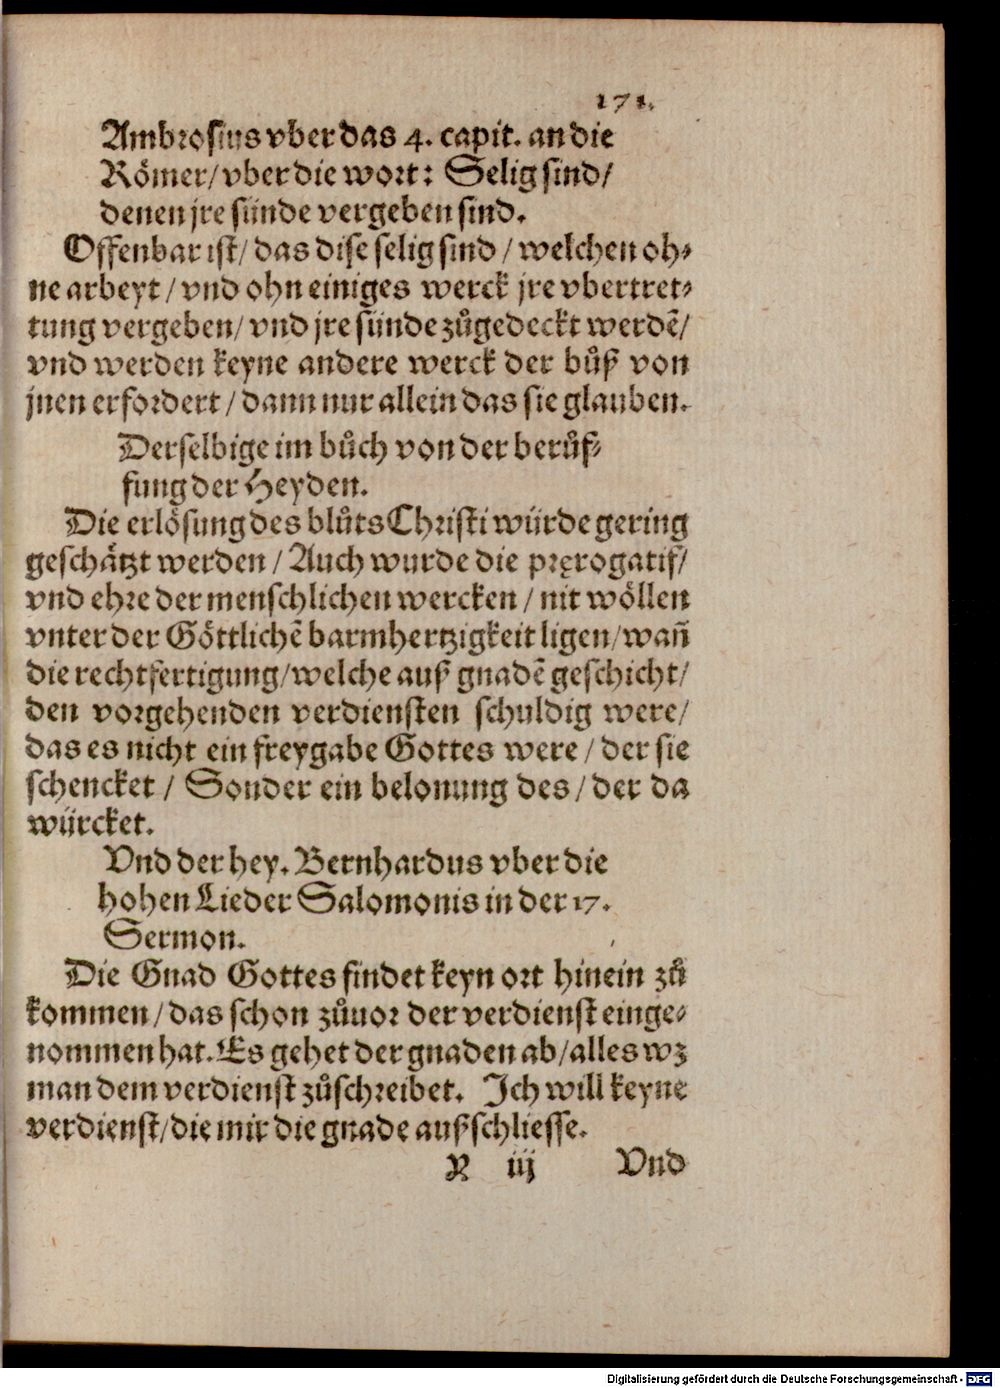 171.
Ambrosius vber das 4. capit. an die
Römer/ vber die wort: Selig sind/
denen jre sünde vergeben sind.
Offenbar ist/ das dise selig sind / welchen oh⸗
ne arbeyt / vnd ohn einiges werck jre vbertret⸗
tung vergeben/ vnd jre sünde zůgedeckt werdẽ/
vnd werden keyne andere werck der bůß von
jnen erfordert / dann nur allein das sie glauben.
Derselbige im bůch von der berůf⸗
fung der Heyden.
Die erlösung des blůts Christi würde gering
geschätzt werden / Auch wurde die pręrogatif/
vnd ehre der menschlichen wercken / nit wöllen
vnter der Göttlichẽ barmhertzigkeit ligen/ wañ
die rechtfertigung/ welche auß gnadẽ geschicht/
den vorgehenden verdiensten schuldig were/
das es nicht ein freygabe Gottes were / der sie
schencket / Sonder ein belonung des / der da
würcket.
Vnd der hey. Bernhardus vber die
hohen Lieder Salomonis in der 17.
Sermon.
Die Gnad Gottes findet keyn ort hinein zů
kommen / das schon zůuor der verdienst einge⸗
nommen hat. Es gehet der gnaden ab/ alles wz
man dem verdienst zůschreibet. Ich will keyne
verdienst/ die mir die gnade außschliesse.
Y iij Vnd
Digitalisierung gefördert durch die Deutsche Forschungsgemeinschaft - DFG